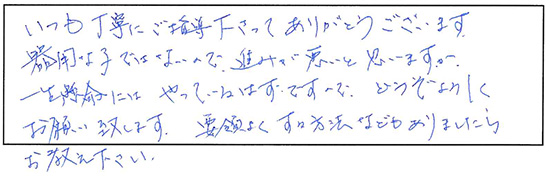 いつも丁寧にご指導下さってありがとうございます.
器用な子ではないので、進みが悪いと思いますが、
一生懸命にはやっているはずですので、どうぞよろしく
お願い致します. 要領よくする方法などもありましたら
お教え下さい.